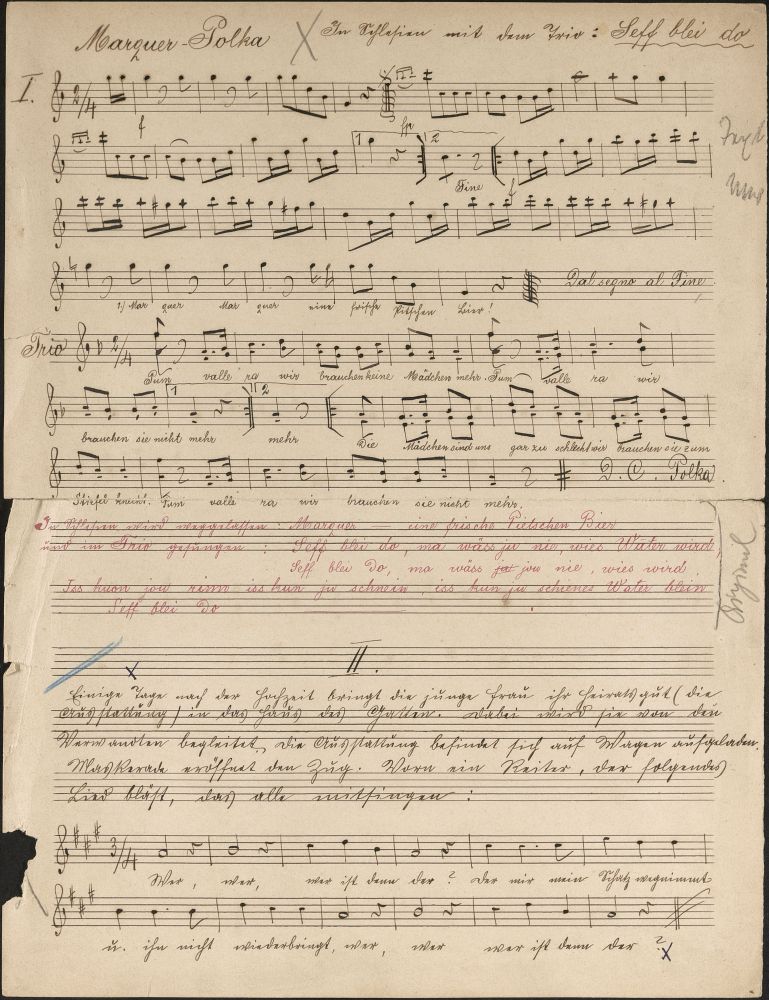 Marquer-Polka
In Schlesien mit dem Trio: Seff blei do
I.
2/4
f
fp
1
2
Fine
f
1) Mar quer Mar quer eine frische Pitschen Bier!
Dal segno al Fine
Trio
2/4
Tum valle ra wir brauchen keine Mädchen mehr. Tum valle ra wir
1
2
brauchen sie nicht mehr mehr Die Mädchen sind uns gar zu schlecht wir brauchen sie zum
D. C. Polka.
Stiefel knecht. Tum valle ra wir brauchen sie nicht mehr.
In Schlesien wird weggelassen: Marquer — eine frische Pietschen Bier
und im Trio gesungen: Seff blei do, ma wäss ju nie, wies Water wird,
Seff blei do, ma wäss jou nie, wies wird.
Iss kuon jou räine iss kun ju schnein, iss kun ju schienes Water blein
Seff blei do
Original
II.
Einige Tage nach der Hochzeit bringt die junge Frau ihr Heiratsgut (die
Ausstattung) in das Haus des Gatten. Dabei wird sie von den
Verwandten begleitet. Die Ausstattung befindet sich auf Wagen aufgeladen.
Maskerade eröffnet den Zug. Vorn ein Reiter, der folgendes
Lied bläst, das alle mitsingen:
3/4
Wer, wer, wer ist denn der? Der mir mein Schatz wegnimmt
u. ihn nicht wiederbringt, wer, wer wer ist denn der?